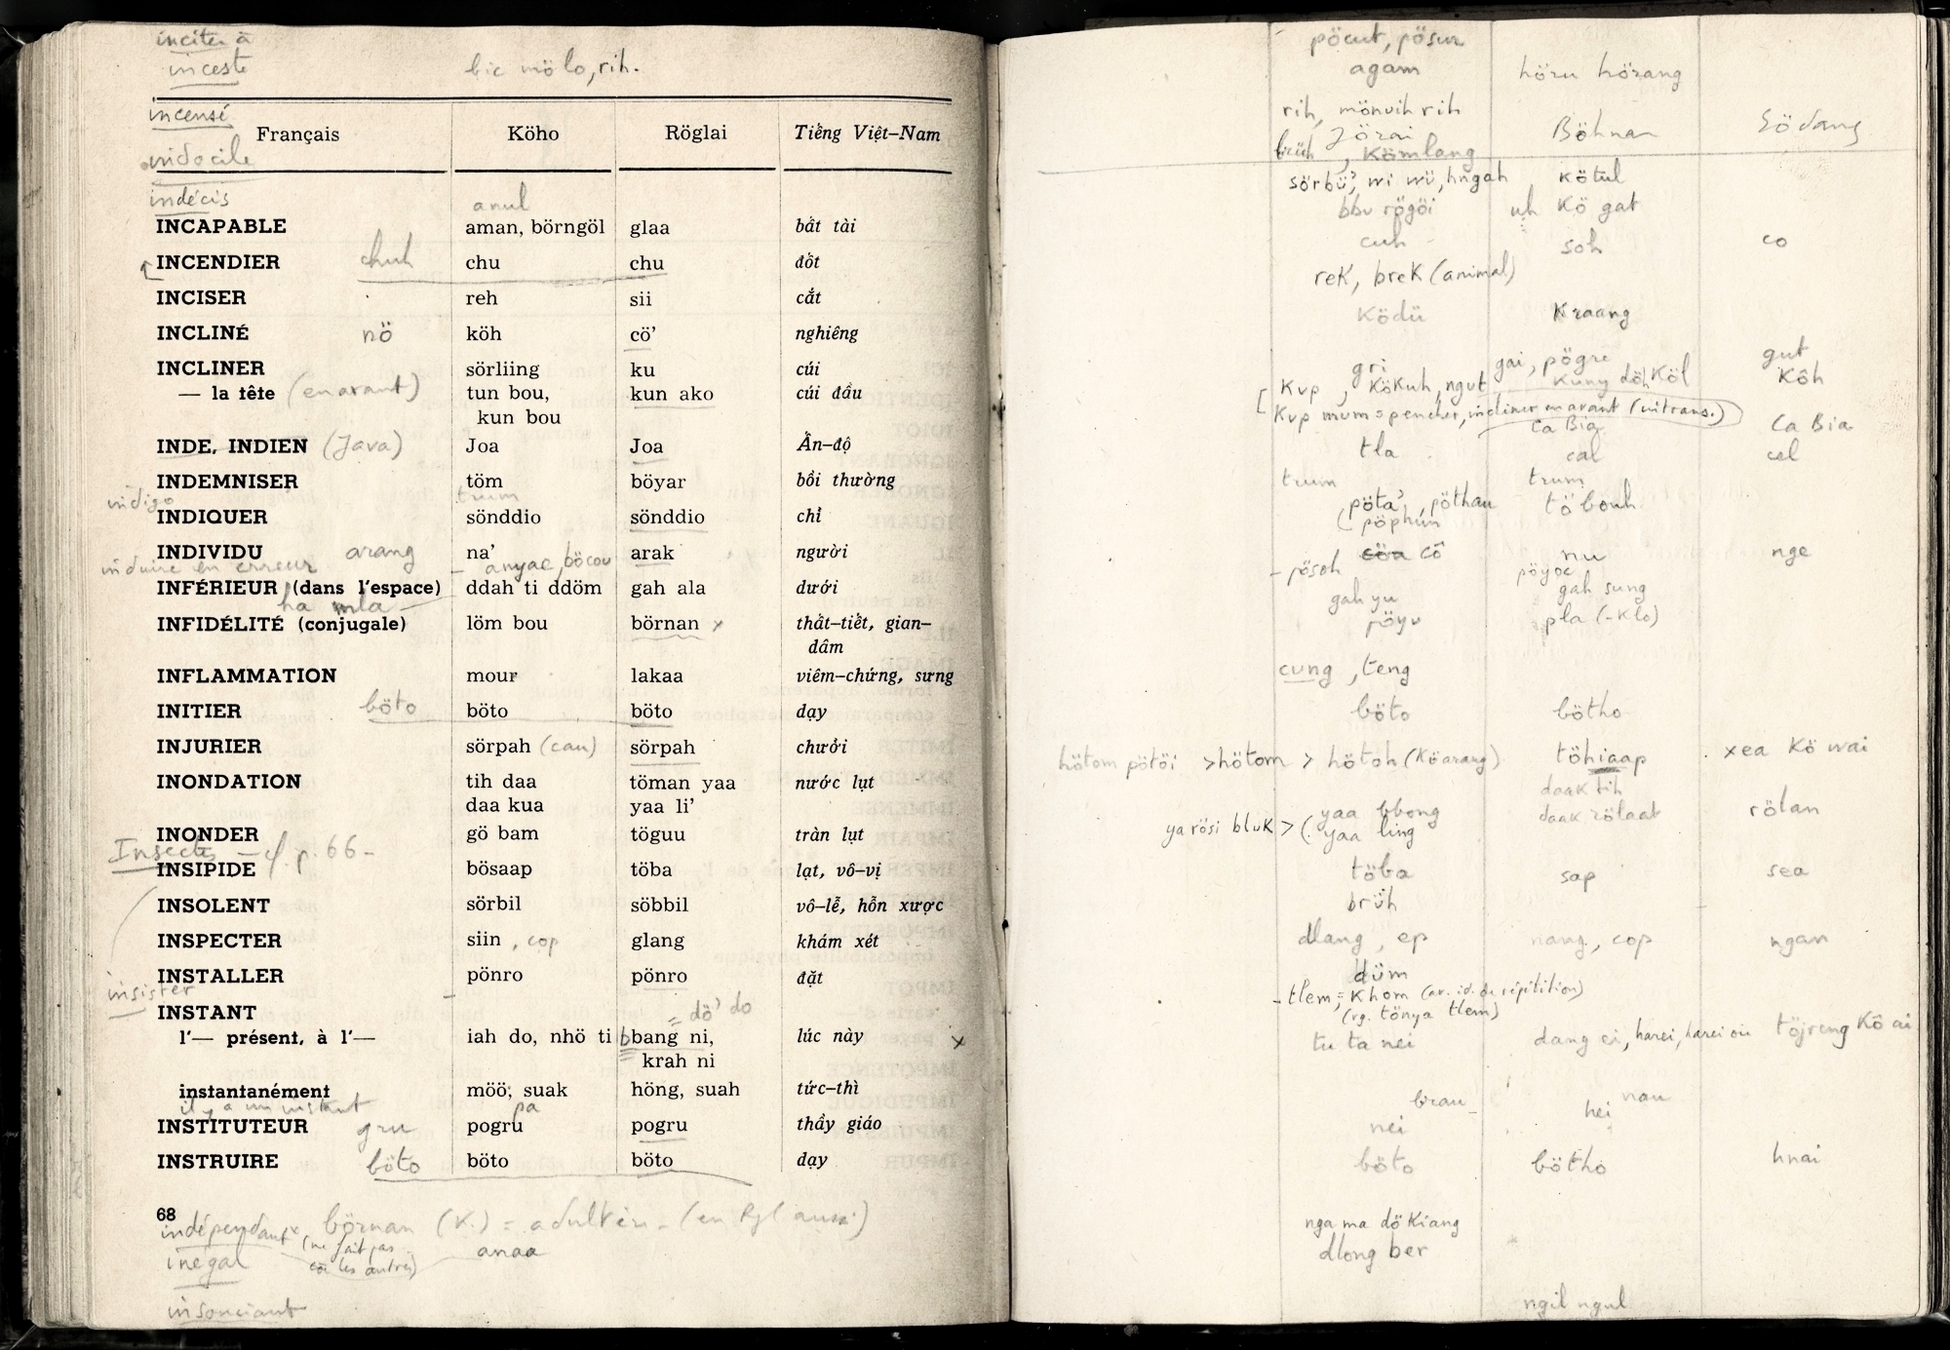 inciter à
inceste
bic mö lo, rih.
incensé
Français Köho Röglai Tiếng Việt–Nam
indocile
indécis
anul
INCAPABLE aman, börngöl glaa bất tài
INCENDIER chuh chu chu đốt
INCISER reh sii cắt
INCLINÉ nö köh cö’ nghiêng
INCLINER sörliing ku cúi
— la tête (en avant) tun bou, kun ako cúi đầu
kun bou
INDE, INDIEN (Java) Joa Joa Ấn–độ
INDEMNISER töm böyar bồi thường
indigo trum
INDIQUER sönddio sönddio chỉ
INDIVIDU arang na’ arak người
induire en erreur – anyae, böcou
INFÉRIEUR (dans l’espace) ddah ti ddöm gah ala dưới
ha mla
INFIDÉLITÉ (conjugale) löm bou börnan x thất–tiết, gian–
dâm
INFLAMMATION mour lakaa viêm–chứng, sưng
INITIER böto böto böto dạy
INJURIER sörpah (cau) sörpah chưởi
INONDATION tih daa töman yaa nước lụt
daa kua yaa li’
INONDER gö bam töguu tràn lụt
Insectes – cf. p. 66 –
INSIPIDE bösaap töba lạt, vô–vị
INSOLENT sörbil söbbil vô–lễ, hỗn xược
INSPECTER siin , cop glang khám xét
INSTALLER pönro pönro đặt
insister
INSTANT = dö’ do
l’— présent, à l’— iah do, nhö ti bbang ni, lúc này x
krah ni
instantanément möö, suak höng, suah tức–thì
il y a un instant pa
INSTITUTEUR gru pogru pogru thầy giáo
INSTRUIRE böto böto böto dạy
68
indépendant börnan (K.) = adultère – (en Rgl aussi)
(ne fait pas
cë les autres)
inégal anaa
insouciant
pöcut, pösur
agam höru hörang
rih, mönuih rih
Jörai Böhnar Södang
brüh , Kömlang
sörbü, wi wü, hngah kötul
bbu rögöi uh Kö gat
cuh soh co
rek, brek (animal)
Ködü Kraang
gri gai, pögre gut
Kup , Kökuh, ngut Kuny döh Köl Kôh
Kup mum = pencher, incliner en avant (intrans.)
Ca Bia Ca Bia
tla cal cel
trum trum
pöta’, pöthau töbonh
pöphun
cöa cô nu nge
– pösoh pöyoc
gah yu gah sung
pöyu pla (-Klo)
cung , teng
böto bötho
hötom pötöi > hötom > hötoh (Köarang) töhiaap xea Kö wai
daak tih
yaa bbong daak rölaat rölan
ya rösi bluk > ( yaa ling
töba sap sea
brüh
dlang , ep nang, cop ngan
düm
– tlem, = Khom (av. id. de répétition)
(vg. tönya tlem)
tu ta nei dang ei, harei, harei öu töjreng Kô ai
brau hei nau
nei
böto bötho hnai
nga ma dö Kiang
dlong ber
ngil ngul